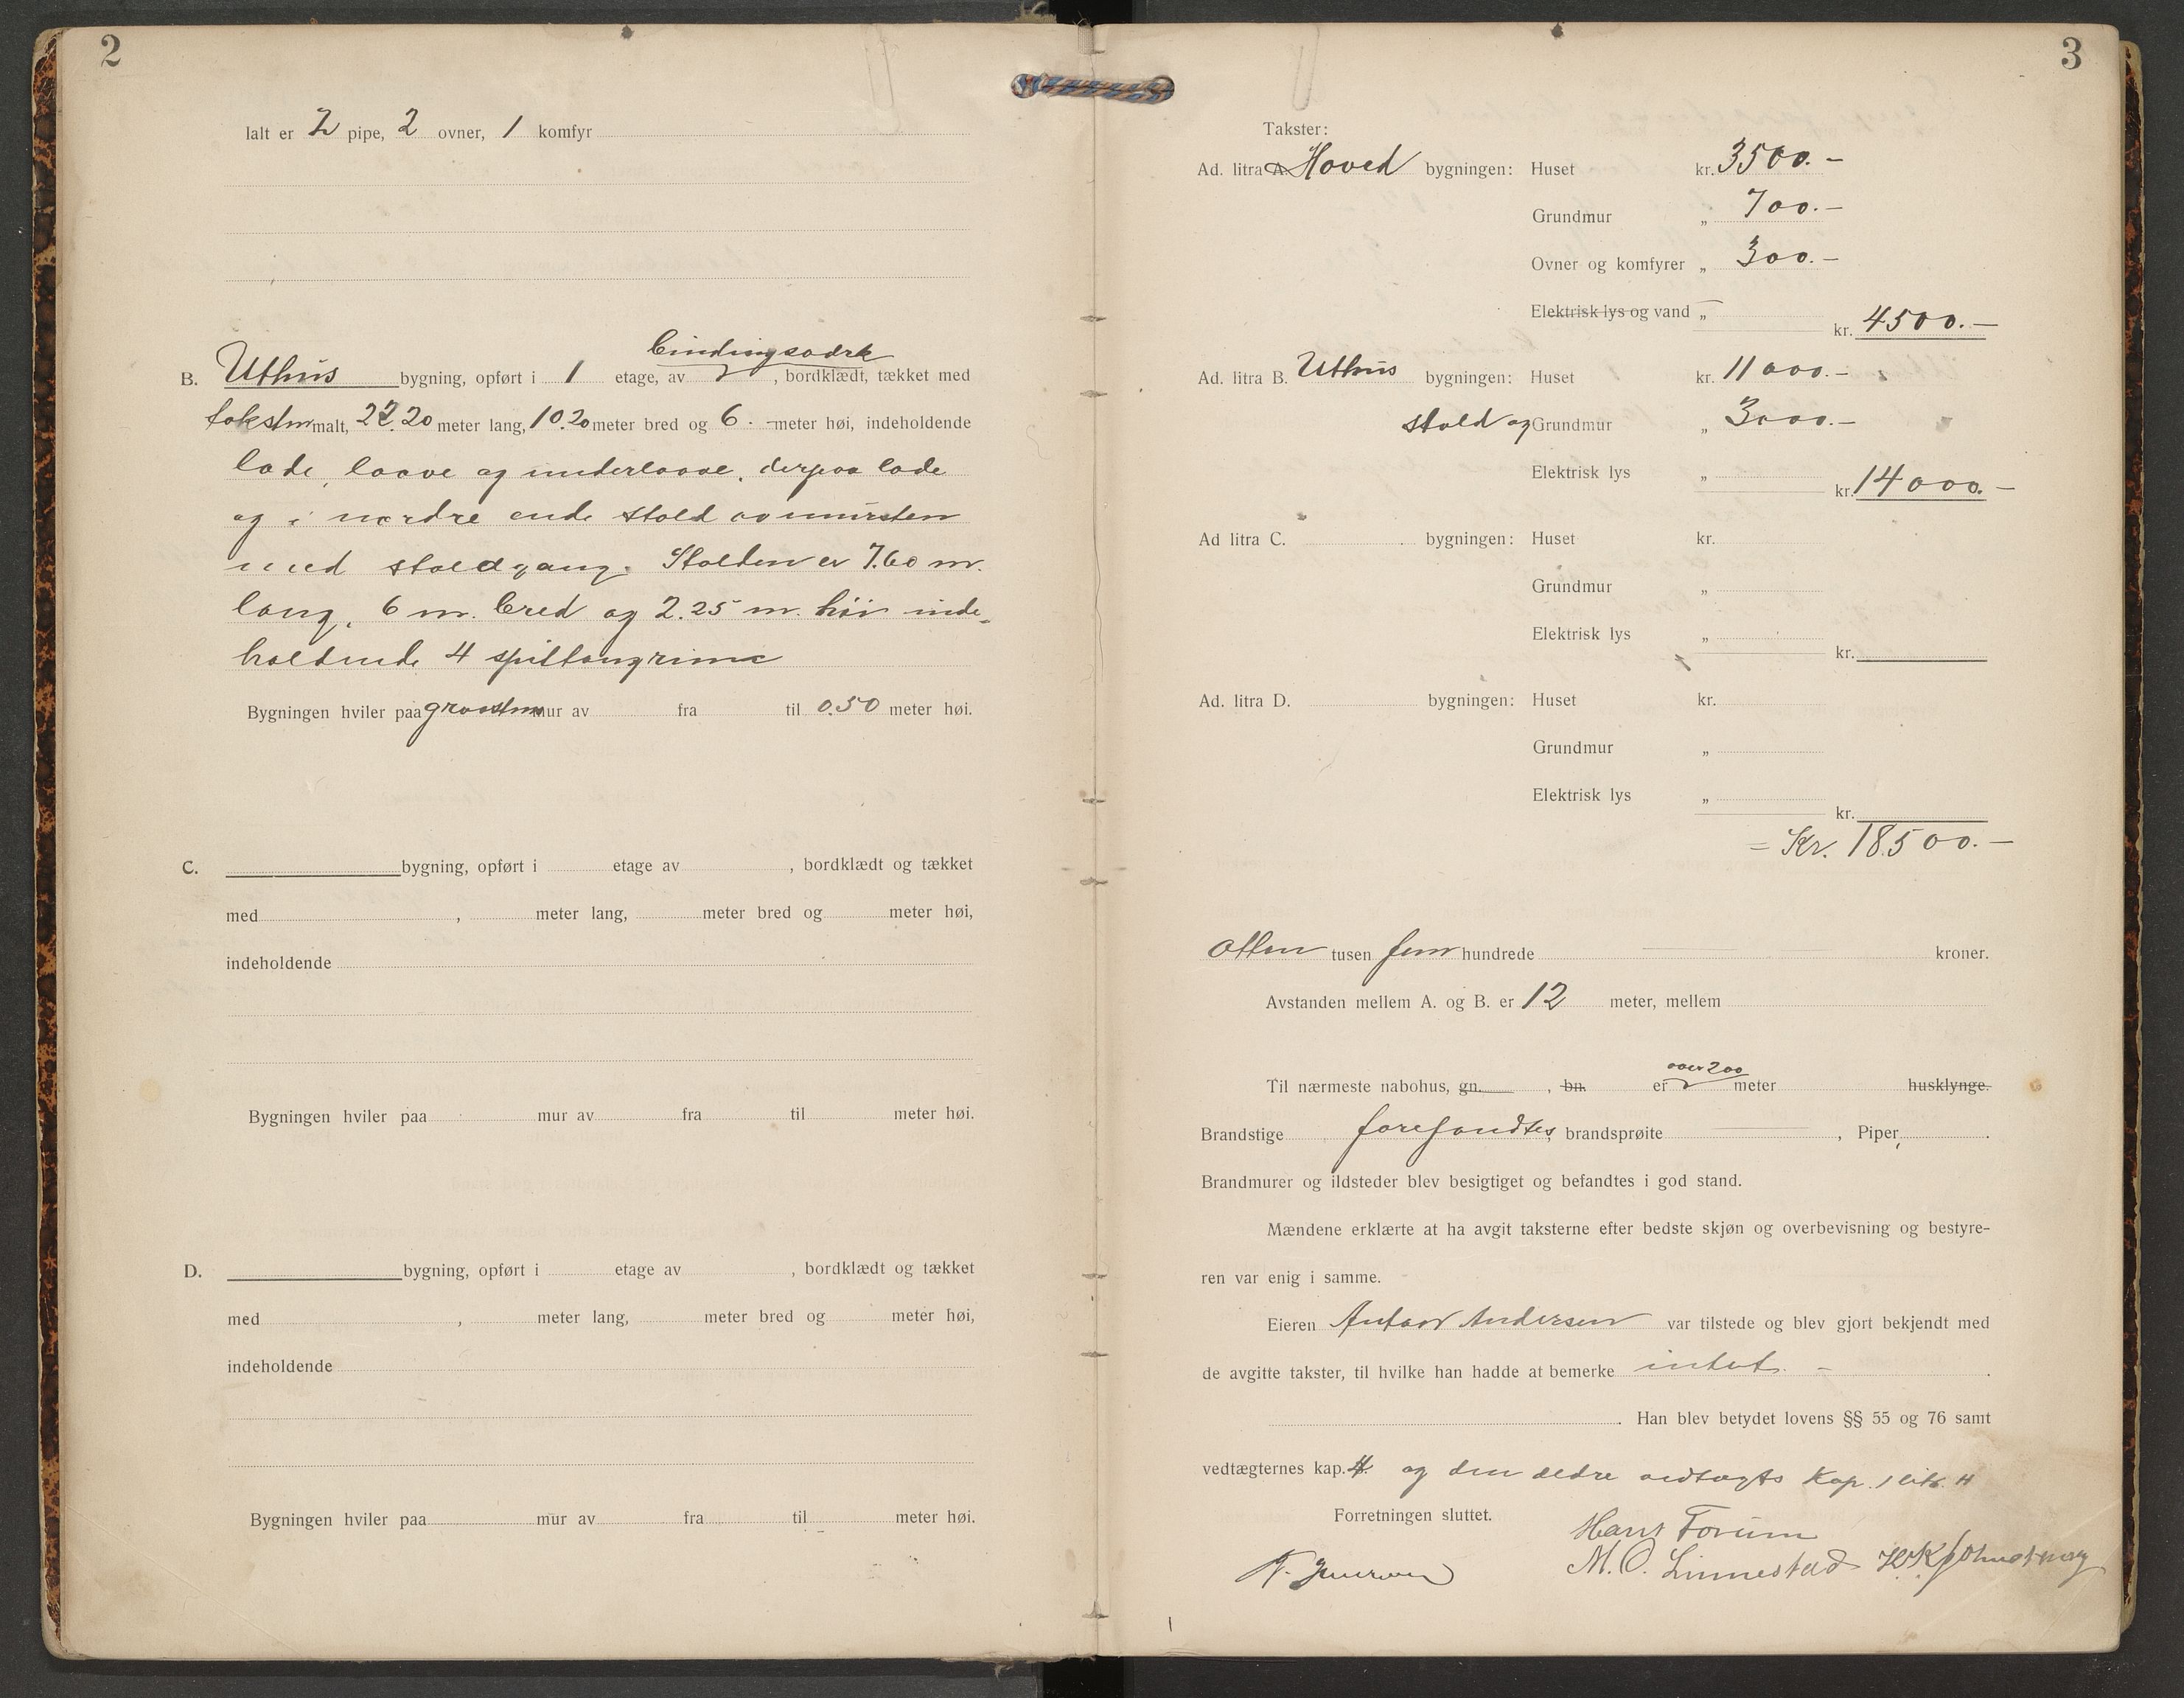 2
Ialt er 2 pipe, 2 ovner, 1 komfyr
bindingsverk
B. Uthus bygning, opført i 1 etage, av , bordklædt, tækket med
taksten malt, 22.20 meter lang, 10.20 meter bred og 6.- meter høi, indeholdende
lade, laave og underlaave, derpaa lade
og i nordre ende stald av mursten
med staldgang. Stalden er 7.60 m.
lang, 6 m. bred og 2.25 m. høi inde-
holdende 4 spiltaugrima
Bygningen hviler paa graasten mur av fra til 0.50 meter høi.
C. bygning, opført i etage av , bordklædt og tækket
med , meter lang, meter bred og meter høi,
indeholdende
Bygningen hviler paa mur av fra til meter høi.
D. bygning, opført i etage av , bordklædt og tækket
med , meter lang, meter bred og meter høi,
indeholdende
Bygningen hviler paa mur av fra til meter høi.
3
Takster:
Ad. litra A. Hoved bygningen: Huset kr. 3500.-
Grundmur „ 700.-
Ovner og komfyrer „ 300.-
Elektrisk lys og vand „ kr. 4500.-
Ad. litra B. Uthus bygningen: Huset kr. 11000.-
stald og Grundmur „ 3000.-
Elektrisk lys „ kr. 14000.-
Ad litra C. bygningen: Huset kr.
Grundmur „
Elektrisk lys „ kr.
Ad. litra D. bygningen: Huset kr.
Grundmur „
Elektrisk lys „ kr.
= Kr. 18500.-
Atten tusen fem hundrede kroner.
Avstanden mellem A. og B. er 12 meter, mellem
over 200
Til nærmeste nabohus, gn. , bn. er meter husklynge.
Brandstige forefandtes, brandsprøite , Piper, .
Brandmurer og ildsteder blev besigtiget og befandtes i god stand.
Mændene erklærte at ha avgit taksterne efter bedste skjøn og overbevisning og bestyre-
ren var enig i samme.
Eieren Anton Andersen var tilstede og blev gjort bekjendt med
de avgitte takster, til hvilke han hadde at bemerke intet. - .
. Han blev betydet lovens §§ 55 og 76 samt
vedtægternes kap. 4. og den ældre vedtægts Kap. 1 litr. H
Forretningen sluttet.
Hans Forum
M. O. Linnestad